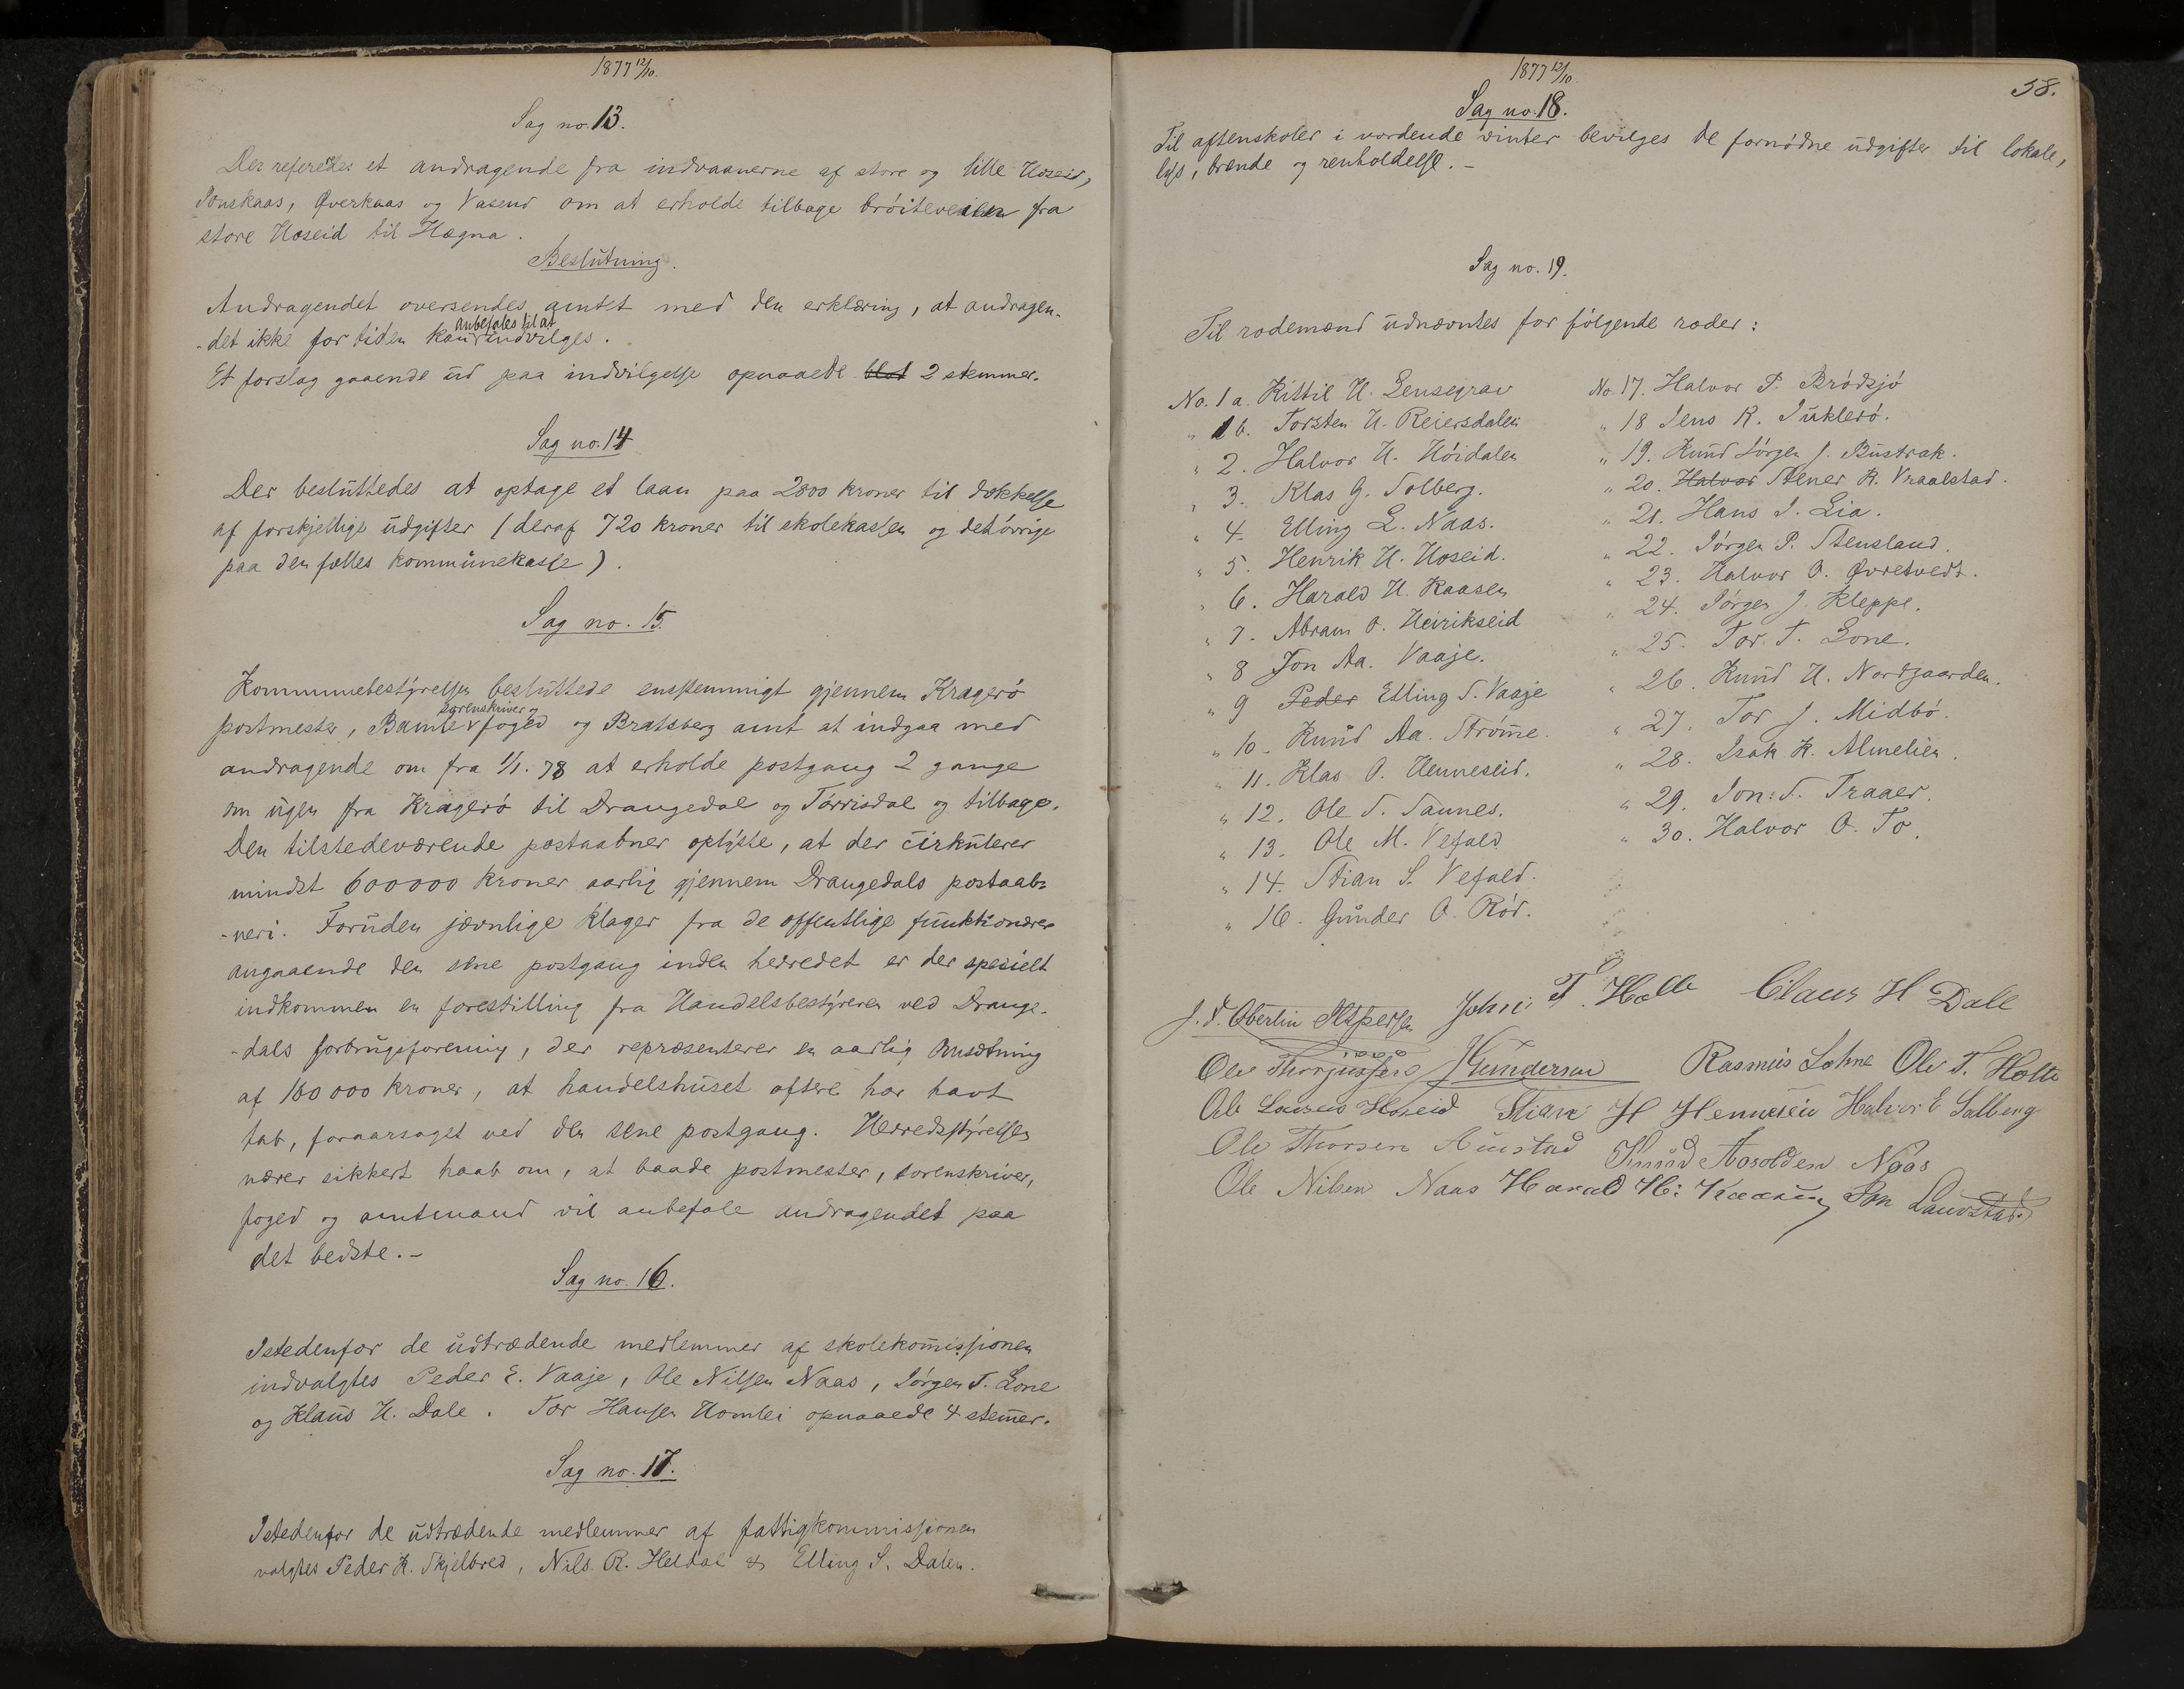 1877 12/10.
Sag no. 13.
Der referedes et andragende fra indvaanerne af store og lille Hoseid,
Jonskaas, Øverkaas og Vasend om at erholde tilbage bróiteveien fra
store Hoseid til Hægna.
Beslutning.
Andragendet oversendes amtet med den erklæring, at andragen-
-det ikke for tiden kan anbefales til at indvilges.
Et forslag gaaende ud paa indvilgelse opnaaede blot 2 stemmer.
Sag no. 14
Der besluttedes at optage et laan paa 2800 kroner til dækkelse
af forskjellige udgifter (deraf 720 kroner til skolekassen og det óvrige
paa den fælles kommunekasse).
Sag no. 15.
Kommunebestyrelsen besluttede enstemmigt gjennem Krageró
postmester, Bamle sorenskriver og foged og Bratsberg amt at indgaa med
andragende om fra 1/1. 78 at erholde postgang 2 gange
om ugen fra Krageró til Drangedal og Tórrisdal og tilbage.
Den tilstedeværende postaabner oplyste, at der cirkulerer
mindst 600000 kroner aarlig gjennem Drangedals postaab-
-neri. Foruden jævnlige klager fra de offentlige funktionærer
angaaende den sene postgang inden herredet er der specielt
indkommen en forestilling fra Handelsbestyreren ved Drange-
-dals forbrugsforening, der repræsenterer en aarlig omsætning
af 160000 kroner, at handelshuset oftere har havt
tab, foraarsaget ved den sene postgang. Herredsstyrelsen
nærer sikkert haab om, at baade postmester, sorenskriver,
foged og amtmand vil anbefale andragendet paa
det bedste.-
Sag no. 16.
Istedenfor de udtrædende medlemmer af skolekomissionen
indvalgtes Peder E. Vaaje, Ole Nilsen Naas, Jórgen T. Lone
og Klaus H. Dale. Tor Hansen Homlei opnaaede 4 stemer.
Sag no. 17.
Istedenfor de udtrædende medlemmer af fattigkommissionen
valgtes Peder K. Skjelbred, Nils R. Heldal & Elling S. Dalen.
1877 12/10.
58.
Sag no. 18.
Til aftenskoler i vordende vinter bevilges de fornódne udgifter til lokale,
lys, brænde og renholdelse.-
Sag no. 19.
Til rodemænd udnævntes for fólgende roder:
No. 1 a. Kittil H. Lensegrav
" 1 b. Torsten H. Reiersdalen
" 2. Halvor H. Hóidalen
" 3. Klas G. Solberg.
" 4. Elling L. Naas.
" 5. Henrik H. Hoseid.
" 6. Harald H. Kaasen
" 7. Abram O. Heirikseid
" 8 Jon Aa. Vaaje.
" 9 Peder Elling S. Vaaje
" 10. Knud Aa. Stróme.
" 11. Klas O. Henneseid.
" 12. Ole T. Sannes.
" 13. Ole M. Vefald
" 14. Stian S. Vefald.
" 16. Gunder O. Ród.
No. 17. Halvor P. Bródsjó
" 18 Jens R. Jukleró.
" 19. Knud Jórgen J. Bustrak.
" 20. Halvor Stener R. Vraalstad.
" 21. Hans J. Lia.
" 22. Jórgen P. Stensland.
" 23. Halvor O. Øvretvedt.
" 24. Jórgen J. Kleppe.
" 25. Tor T. Lone.
" 26. Knud H. Nordgaarden.
" 27. Tor J. Midbó.
" 28. Isak K. Almelien.
" 29. Jon S. Traaer.
" 30. Halvor O. To.
J. D. Oberlin John T. Holte Claus H Dale
Ole Gundersen Rasmus Lohne Ole T. Holte
Ole Hoseid Stian H Henneseid Halvor E Solberg
Ole Thorsen Austad Knud Aaroldsen Naas
Ole Nilsen Naas Harald H: Kaasen Landstad.